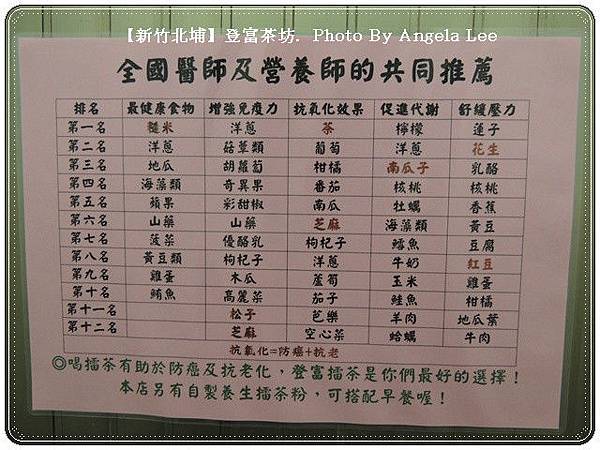 【新竹北埔】登富茶坊. Photo By Angela Lee
全國醫師及營養師的共同推薦
排名 最健康食物 增強免疫力 抗氧化效果 促進代謝 舒緩壓力
第一名 糙米 洋蔥 茶 檸檬 蓮子
第二名 洋蔥 菇蕈類 葡萄 洋蔥 花生
第三名 地瓜 胡蘿蔔 柑橘 南瓜子 乳酪
第四名 海藻類 奇異果 番茄 核桃 核桃
第五名 蘋果 彩甜椒 南瓜 牡蠣 香蕉
第六名 山藥 山藥 芝麻 海藻類 黃豆
第七名 菠菜 優酪乳 枸杞子 鱈魚 豆腐
第八名 黃豆類 枸杞子 洋蔥 牛奶 紅豆
第九名 雞蛋 木瓜 蘆筍 玉米 雞蛋
第十名 鮪魚 高麗菜 茄子 鮭魚 柑橘
第十一名 松子 芭樂 羊肉 地瓜葉
第十二名 芝麻 空心菜 蛤蠣 牛肉
抗氧化=防癌+抗老
◎喝擂茶有助於防癌及抗老化，登富擂茶是你們最好的選擇！
本店另有自製養生擂茶粉，可搭配早餐喔！